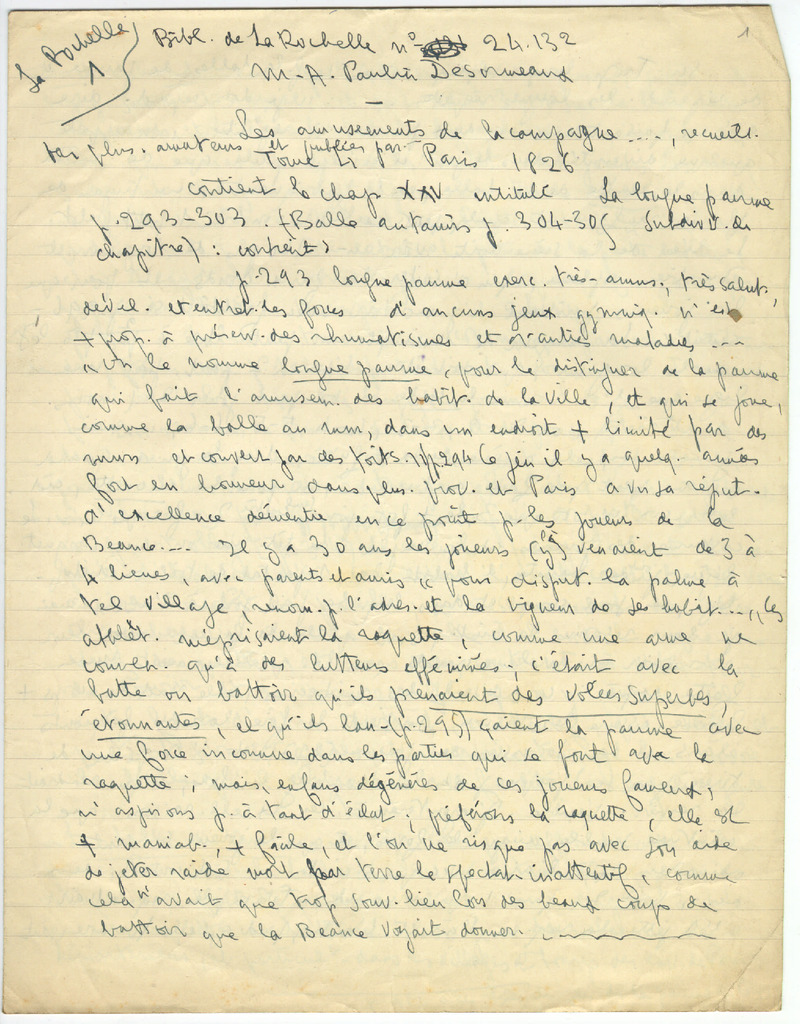 1
La Rochelle
1
Bibl. de La Rochelle n° 24.132
M-A. Paulin Desormeaux
Les amusements de la campagne ...., recueill.
plus. amateurs et publiés par
Tome 4 Paris 1826
contient le chap XXV intitulé La longue paume
p. 293-303. (Balle au tamis p. 304-305 subdiv. du
chapitre) : contient
p. 293 longue paume exerc. très-amus., très salut.,
dével. et entret. les forces d'aucuns jeux gymniq. n'est
+ prop. à préserv. des rhumatismes et d'autres maladies ...
"On le nomme longue paume, pour le distinguer de la paume
qui fait l'amusem. des habit. de la ville, et qui se joue,
comme la balle au mur, dans un endroit + limité par des
murs et couvert par des toits. p 294 Ce jeu il y a quelq. années
fort en honneur dans plus. prov. et Paris a vu sa réput.
d'excellence démentie en ce point p. les joueurs de la
Beauce.... Il y a 30 ans les joueurs venaient de 3 à
4 lieues, avec parents et amis "pour disput. la palme à
tel village, renom. p. l'adres. et la vigueur de ses habit...., "ces
athlèt. méprisaient la raquette, comme une arme ne
conven. qu'à des lutteurs efféminés ; c'était avec la
batte ou battoir qu'ils prenaient des volées superbes,
étonnantes, et qu'ils lan-(p. 295) çaient la paume avec
une force inconnue dans les parties qui se font avec la
raquette ; mais, enfans dégénérés de ces joueurs fameux,
n'aspirons p. à tant d'éclat ; préférons la raquette, elle est
+ maniab., + facile, et l'on ne risque pas avec son aide
de jeter raide mort par terre le spectat. inattentif, comme
cela n'avait que trop souv. lieu lors des beaux coups de
battoir que la Beauce voyait donner.